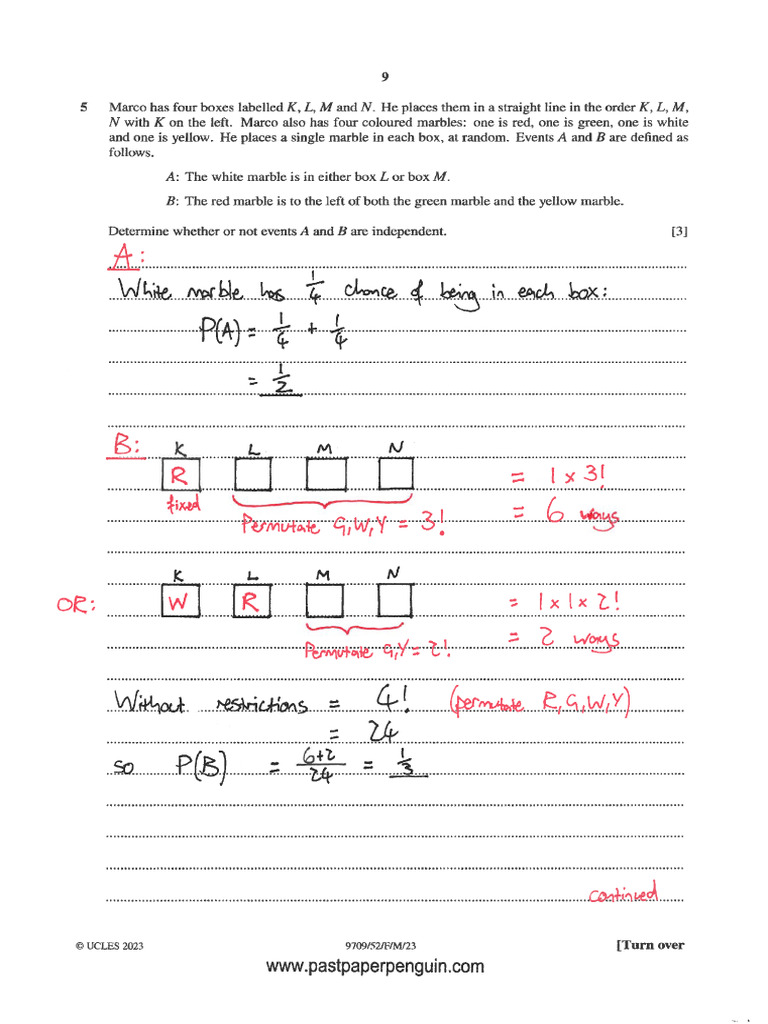 9
5 Marco has four boxes labelled K, L, M and N. He places them in a straight line in the order K, L, M,
N with K on the left. Marco also has four coloured marbles: one is red, one is green, one is white
and one is yellow. He places a single marble in each box, at random. Events A and B are defined as
follows.
A: The white marble is in either box L or box M.
B: The red marble is to the left of both the green marble and the yellow marble.
Determine whether or not events A and B are independent. [3]
A:
White marble has 1/4 chance of being in each box:
P(A) = 1/4 + 1/4
= 1/2
B: K L M N
R = 1 x 3!
fixed Permutate G,W,Y = 3! = 6 ways
K L M N
OR: W R = 1 x 1 x 2!
Permutate G,Y = 2! = 2 ways
Without restrictions = 4! (permutate R,G,W,Y)
= 24
so P(B) = 6+2/24 = 1/3
continued
© UCLES 2023 9709/52/F/M/23 [Turn over
www.pastpaperpenguin.com